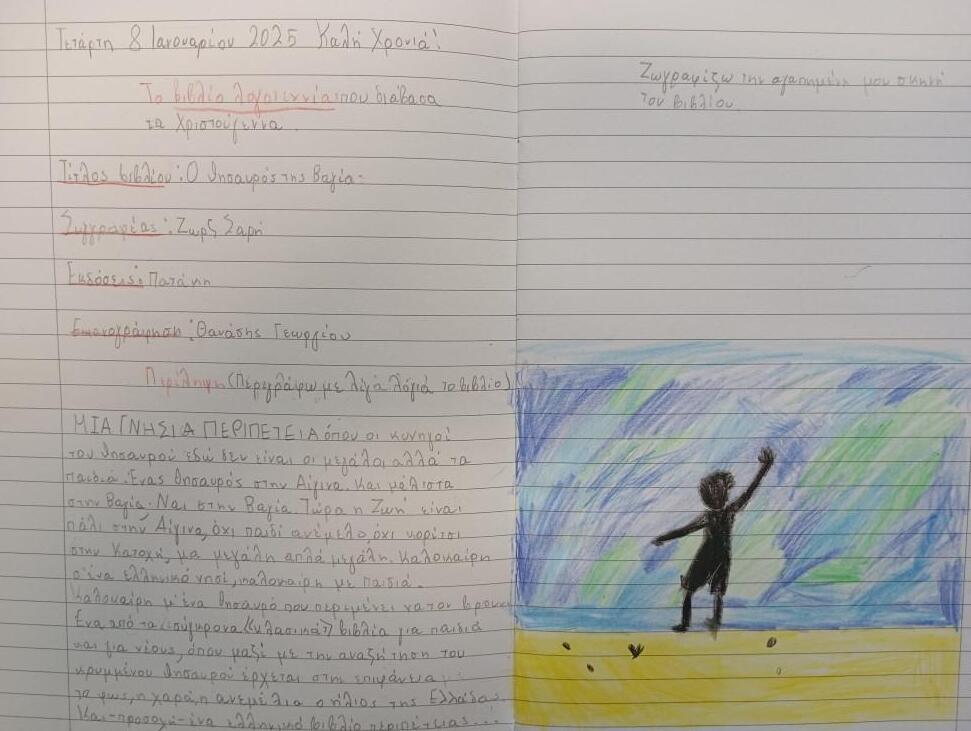 Τετάρτη 8 Ιανουαρίου 2025 Καλή Χρονιά!
Το βιβλίο λογοτεχνία που διάβασα
τα Χριστούγεννα.
Τίτλος βιβλίου: Ο θησαυρός της Βαγία.
Συγγραφέας: Ζωρζ Σαρή
Εκδόσεις: Πατάκη
Εικονογράφηση: Θανάσης Γεωργίου
Περίληψη (Περιγράφω με λίγα λόγια το βιβλίο)
ΜΙΑ ΓΝΗΣΙΑ ΠΕΡΙΠΕΤΕΙΑ όπου οι κυνηγοί
του θησαυρού εδώ δεν είναι οι μεγάλοι αλλά τα
παιδιά. Ένας θησαυρός στην Αίγινα. Και μάλιστα
στην Βαγία. Ναι στην Βαγία. Τώρα η Ζωή είναι
πάλι στην Αίγινα, όχι παιδί ανέμελο όχι κορίτσι
στην Κατοχή, μα μεγάλη απλά μεγάλη. Καλοκαίρη
σ'ένα ελληνικό νησί, καλοκαίρη με παιδιά.
Καλοκαίρη μ'ένα θησαυρό που περιμένει να τον βρουν.
Ένα από τα σύγχρονα «κλασικά» βιβλία για παιδιά
και για νέους, όπου μαζί με την αναζήτηση του
κρυμμένου θησαυρού έρχεται στην επιφάνεια
το φως, η χαρά, η ανεμέλια ο ήλιος της Ελλάδας.
Και-προσοχή-ένα ελληνικό βιβλίο περιπέτειας...
Ζωγραφίζω την αγαπημένη μου σκηνή
του βιβλίου.